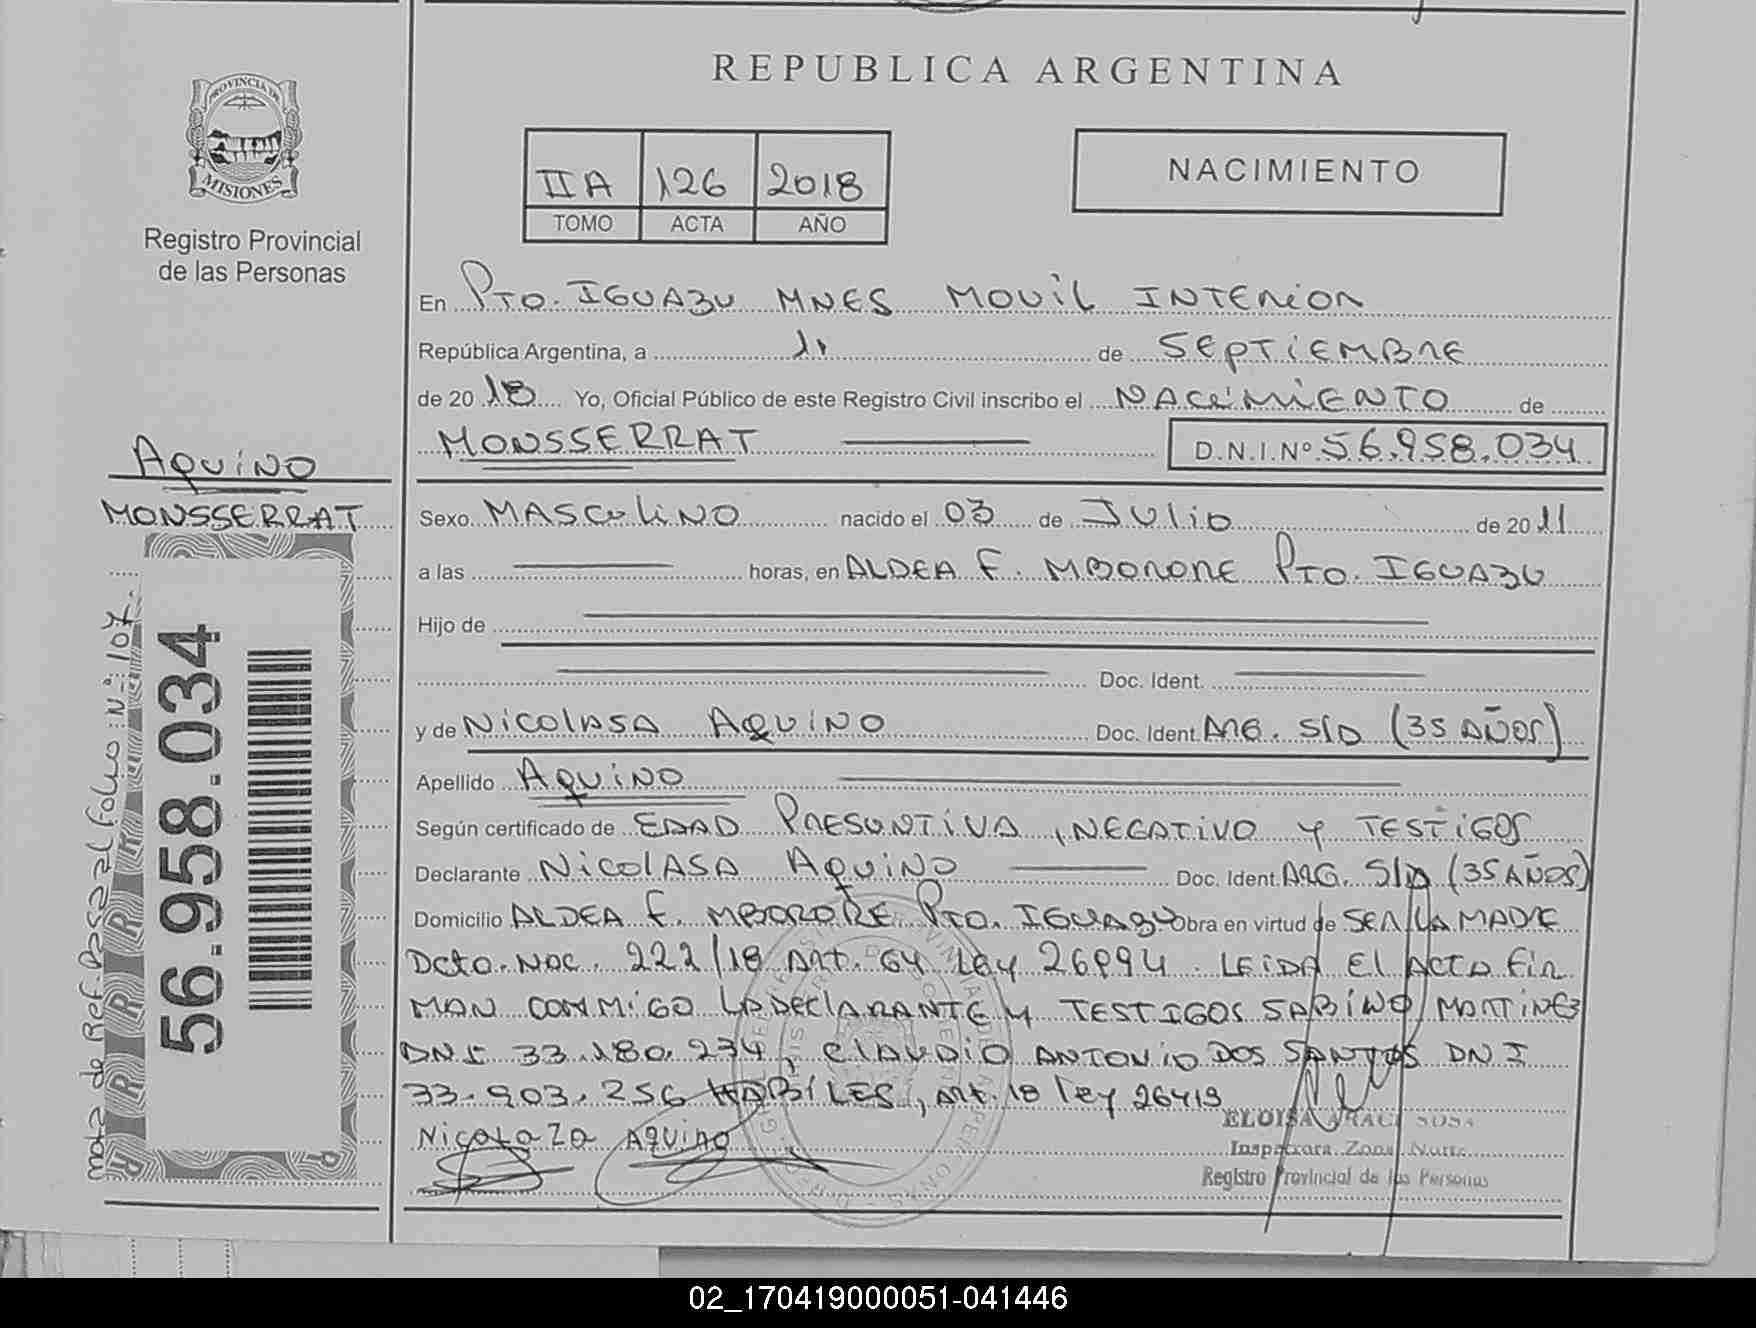 REPUBLICA ARGENTINA
PROVINCIA DE
MISIONES
Registro Provincial
de las Personas
IIA 126 2018
TOMO ACTA AÑO
NACIMIENTO
En PTO. IGUAZU MNES MOVIL INTERIOR
República Argentina, a 11 de SEPTIEMBRE
de 20 18 Yo, Oficial Público de este Registro Civil inscribo el NACIMIENTO de
MONSSERRAT D.N.I.Nº 56.958.034
AQUINO
MONSSERRAT
Sexo MASCULINO nacido el 03 de JULIO de 20 11
a las horas, en ALDEA F. MBORORE PTO. IGUAZU
Hijo de
Doc. Ident.
y de NICOLASA AQUINO Doc. Ident. ARG. S/D (35 AÑOS)
Apellido AQUINO
Según certificado de EDAD PRESUNTIVA, NEGATIVO Y TESTIGOS
Declarante NICOLASA AQUINO Doc. Ident. ARG. S/D (35 AÑOS)
Domicilio ALDEA F. MBORORE PTO. IGUAZU Obra en virtud de SER LA MADRE
Dcto. NAC. 222/18 ART. 64 Ley 26994. LEIDA El ACTA FIR
MAN CONMIGO LA DEClARANTE Y TESTIGOS SABINO MARTINEZ
DNI 33.180.234, ClAUDIO ANTONIO DOS SANTOS DNI
33.903.256 HABILES, Art. 18 ley 26413
NicolaZa AQuino
ELOISA ARACI SOSA
Inspectora Zona Norte
Registro Provincial de las Personas
nota de Ref. Pasa al folio Nº: 107.
56.958.034
02_170419000051-041446